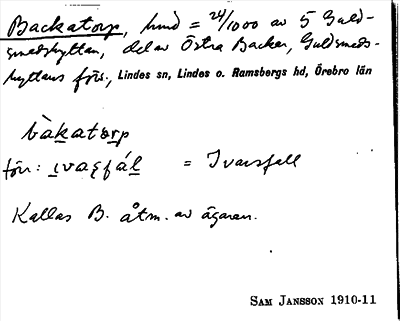 Backatorp, hmd = 24/1000 av 5 Guld-
smedshyttan, del av Östra Backen, Guldsmeds-
hyttans förs., Lindes sn, Lindes o. Ramsbergs hd, Örebro län
bàkatorp
förr: ıvaʂfál = Ivarsfall
Kallas B. åtm. av ägaren.
SAM JANSSON 1910-11